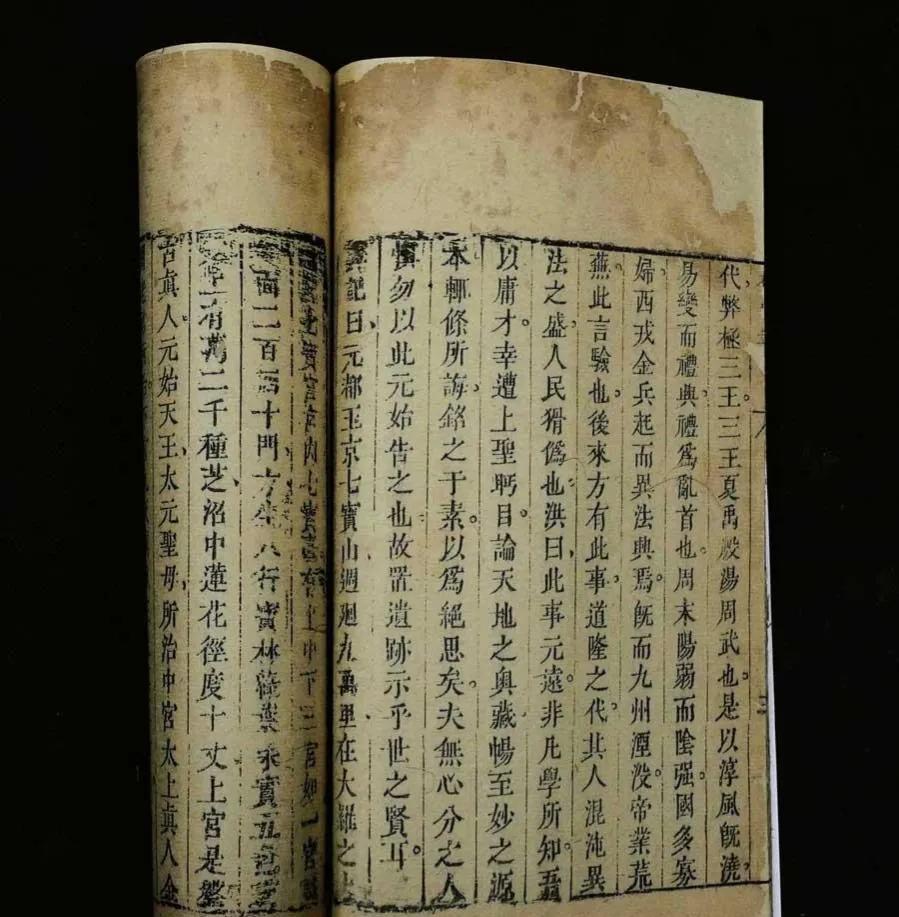 代弊極三王三王夏禹殷湯周武也是以淳風旣澆
易變而禮興禮爲亂首也周末陽弱而陰强國多寡
婦西戎金兵起而異法興焉旣而九州湮没帝業荒
蕪此言驗也後來方有此事道隆之代其人混沌異
法之盛人民猾僞也洪曰此事元遠非凡學所知吾
以庸才幸遭上聖眄目論天地之奧藏暢至妙之源
本輒條所誨銘之于素以爲絕思矣夫無心分之人
慎勿以此元始告之也故置遺跡示乎世之賢耳
眞記曰元都玉京七寶山週廻九萬里在大羅之上
七寶宮宮內七寶臺有上中下三宮如一宮城
面二百四十門方生八行寶林綠葉朱實五色芝
上有萬二千種芝沼中蓮花徑度十丈上宮是盤
古眞人元始天王太元聖母所治中宮太上眞人金